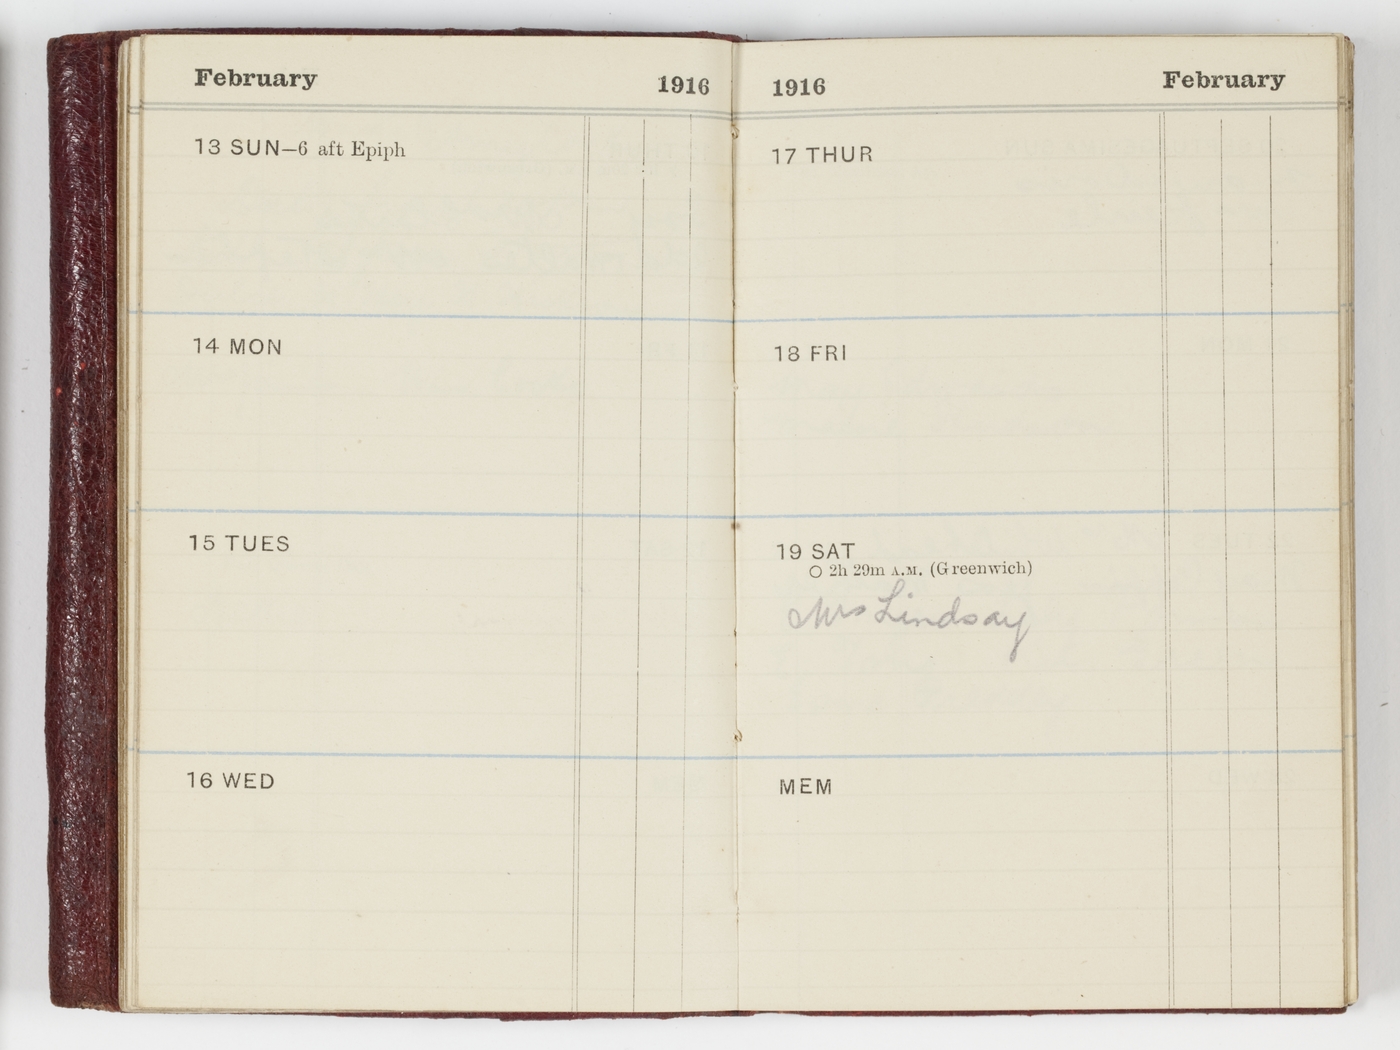 February 1916
13 SUN—6 aft Epiph
14 MON
15 TUES
16 WED
1916 February
17 THUR
18 FRI
19 SAT
○ 2h 29m A.M. (Greenwich)
Mrs Lindsay
MEM